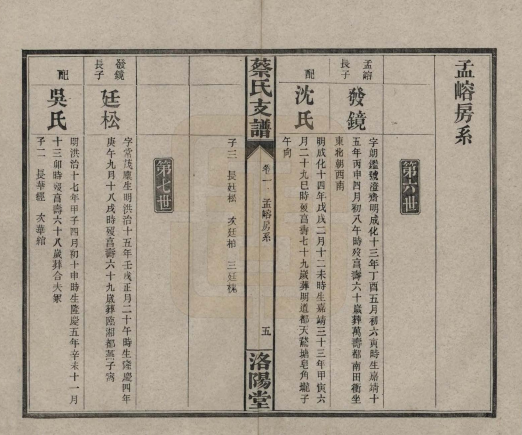 孟嵱房系
第六世
孟嵱長子
發鏡
字朗鑑號澄齋明成化十三年丁酉五月初六寅時生嘉靖十
五年丙申四月初八午時歿享壽六十歲葬萬壽都南田衝坐
東北朝西南
配
沈氏
明成化十四年戊戌二月十二未時生嘉靖三十三年甲寅六
月二十九巳時歿享壽七十九歲葬明道都天鵞塘皂角壠子
午向
子三 長廷松 次廷柏 三廷槐
蔡氏支譜
卷一 孟嵱房系
五
洛陽堂
第七世
發鏡長子
廷松
字常茂慶生明洪治十五年壬戌正月二十午時生隆慶四年
庚午九月十八戌時歿享壽六十九歲葬陸湘都燕子窩
配
吳氏
明洪治十七年甲子四月初十申時生隆慶五年辛未十一月
十三卯時歿享壽六十八歲葬合夫冢
子二 長華經 次華綰